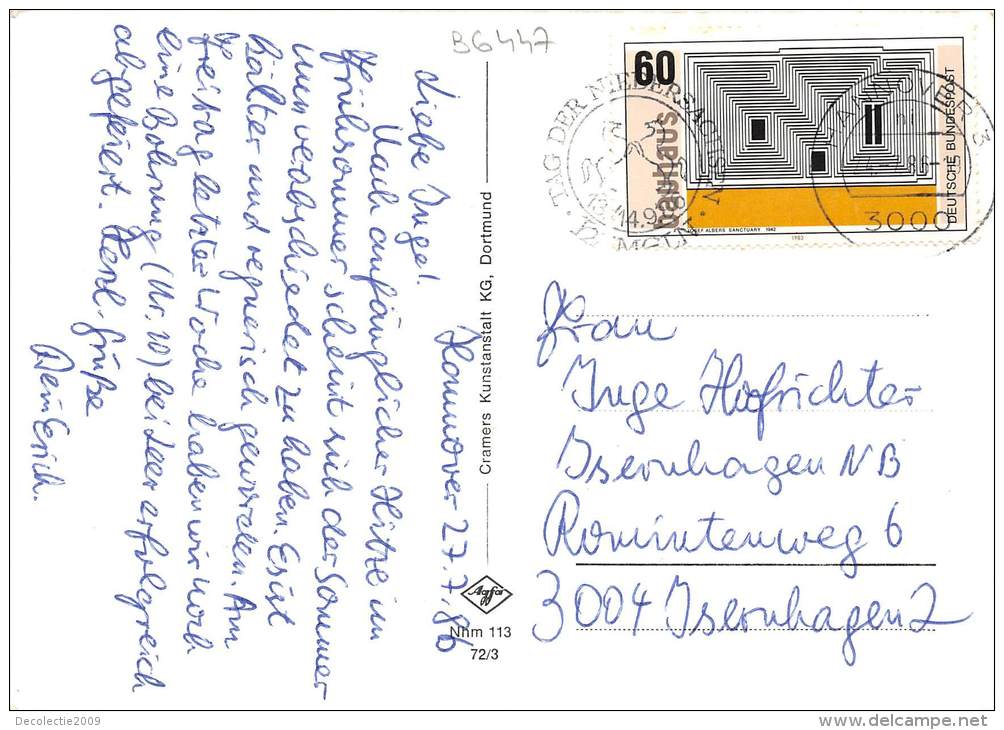 B6447
Hannover 27.7.86
Liebe Inge!
Nach anfänglicher Hitze im
Frühsommer scheint sich der Sommer
nun verabschiedet zu haben. Es ist
kälter und regnerisch geworden. Am
Freitag letzter Woche haben wir noch
eine Bohrung (Nr. 10) bei Leer erfolgreich
abgefeiert. Herzl. Grüße
Dein Erich.
Cramers Kunstanstalt KG, Dortmund
Agfa
Nhm 113
72/3
60
bauhaus
DEUTSCHE BUNDESPOST
JOSEF ALBERS SANCTUARY 1942
1983
TAG DER NIEDERSACHSEN
HANNOVER 3
86
3000
Frau
Inge Hofrichter
Isernhagen NB
Romintenweg 6
3004 Isernhagen 2
Decolectie2009
delcampe.net